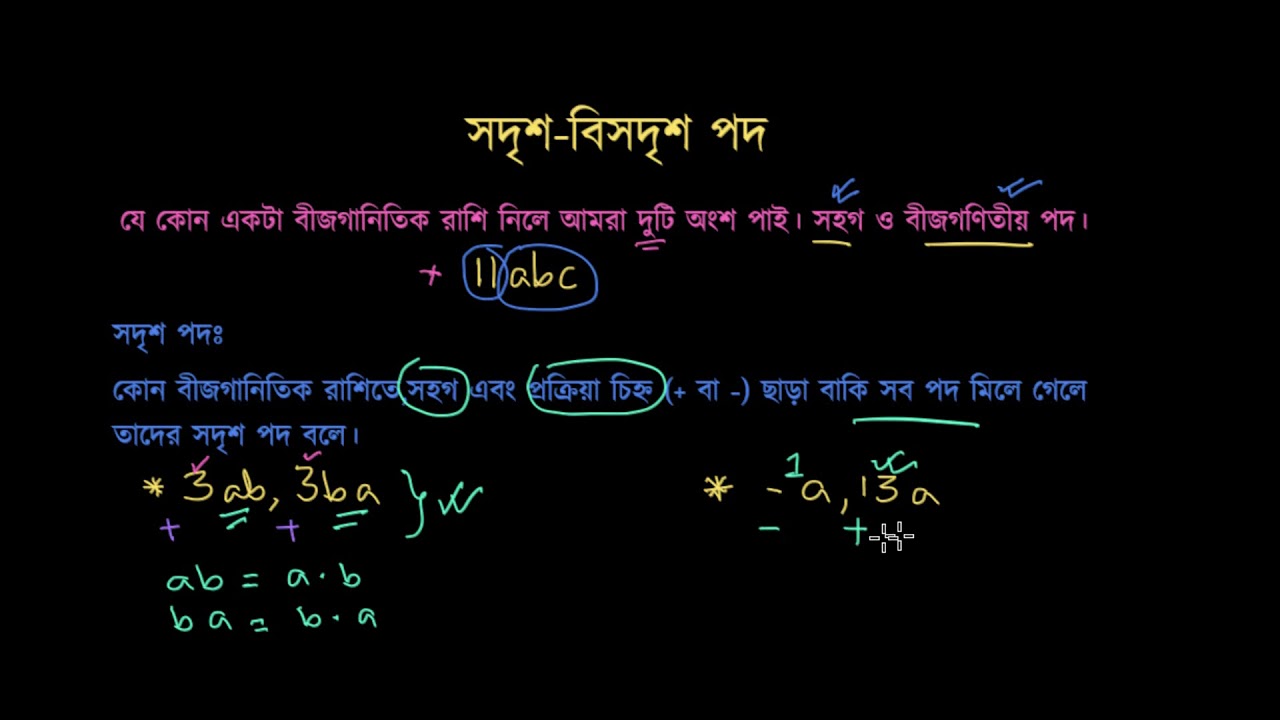 সদৃশ-বিসদৃশ পদ
যে কোন একটা বীজগানিতিক রাশি নিলে আমরা দুটি অংশ পাই। সহগ ও বীজগণিতীয় পদ।
+ 11abc
সদৃশ পদঃ
কোন বীজগানিতিক রাশিতে সহগ এবং প্রক্রিয়া চিহ্ন (+ বা -) ছাড়া বাকি সব পদ মিলে গেলে
তাদের সদৃশ পদ বলে।
* 3ab, 3ba } * -1a, 13a
+ + - +
ab = a·b
ba = b·a